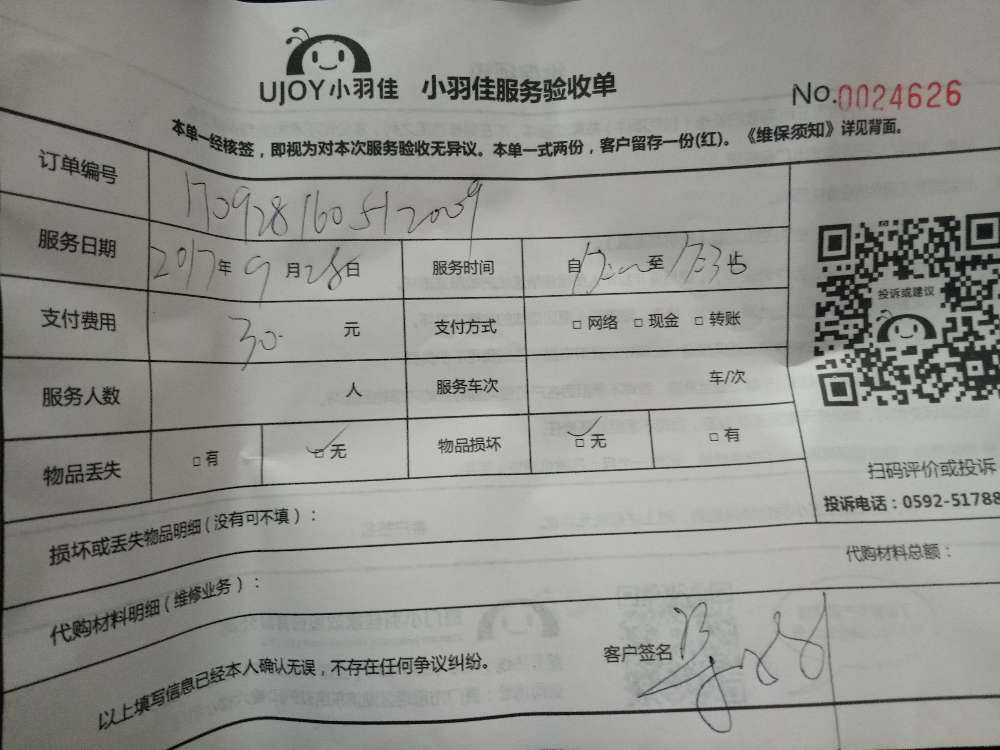 UJOY小羽佳 小羽佳服务验收单 No.0024626
本单一经核签，即视为对本次服务验收无异议。本单一式两份，客户留存一份(红)。《维保须知》详见背面。
订单编号 170928160512009
服务日期 2017年9月28日 服务时间 自 至 止
支付费用 30 元 支付方式 □ 网络 □ 现金 □ 转账
服务人数 人 服务车次 车/次
物品丢失 □ 有 □ 无 物品损坏 □ 无 □ 有
投诉或建议
扫码评价或投诉
投诉电话：0592-51788
损坏或丢失物品明细（没有可不填）：
代购材料明细（维修业务）： 代购材料总额：
以上填写信息已经本人确认无误，不存在任何争议纠纷。 客户签名